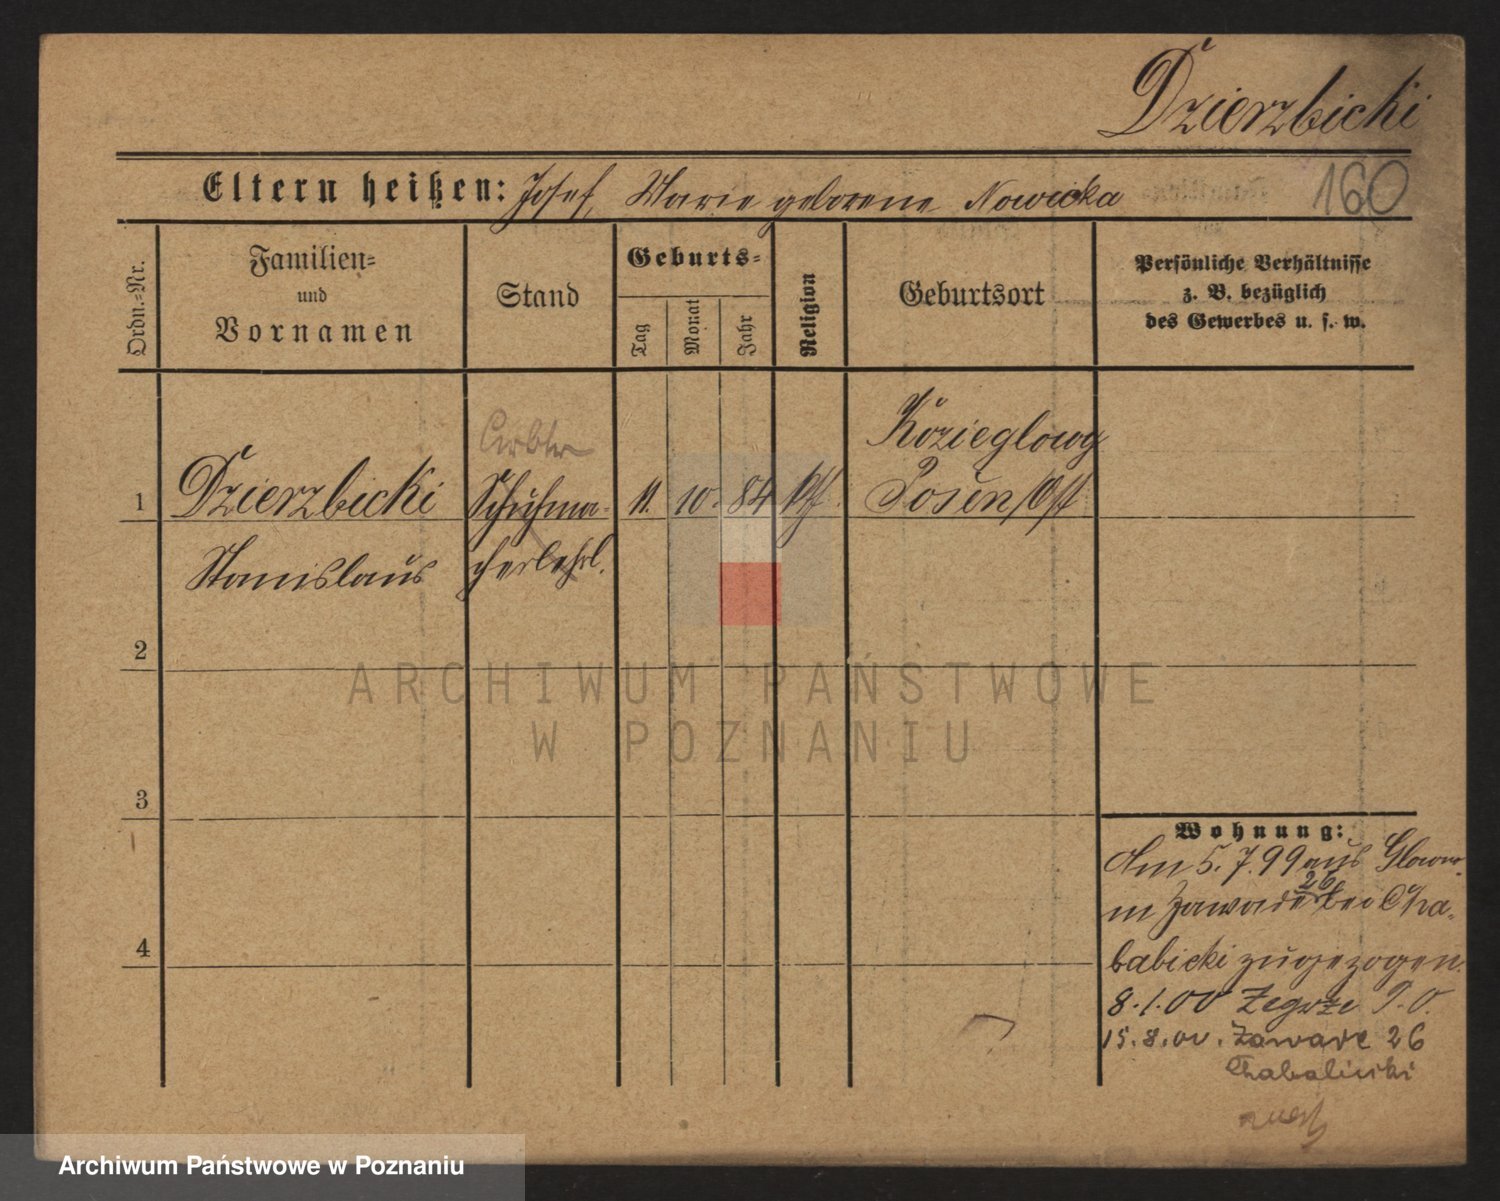 Dzierzbicki
Eltern heißen: Josef, Marie geborene Nowicka
160
Ordn.-Nr.
Familien-
und
Vornamen
Stand
Geburts-
Tag
Monat
Jahr
Religion
Geburtsort
Persönliche Verhältnisse
z. B. bezüglich
des Gewerbes u. s. w.
Arbtr
Kozieglowy
1 Dzierzbicki Schuhma- 11. 10. 84 kf. Posen/Ost
Stanislaus cherlehrl.
2
3
4
Wohnung:
Am 5.7.99 aus Glowno
in Zawade 26 bei Cha-
babicki zugezogen.
8.1.00 Zegrze P.O.
15.8.00. Zawade 26
ARCHIWUM PAŃSTWOWE
W POZNANIU
Archiwum Państwowe w Poznaniu